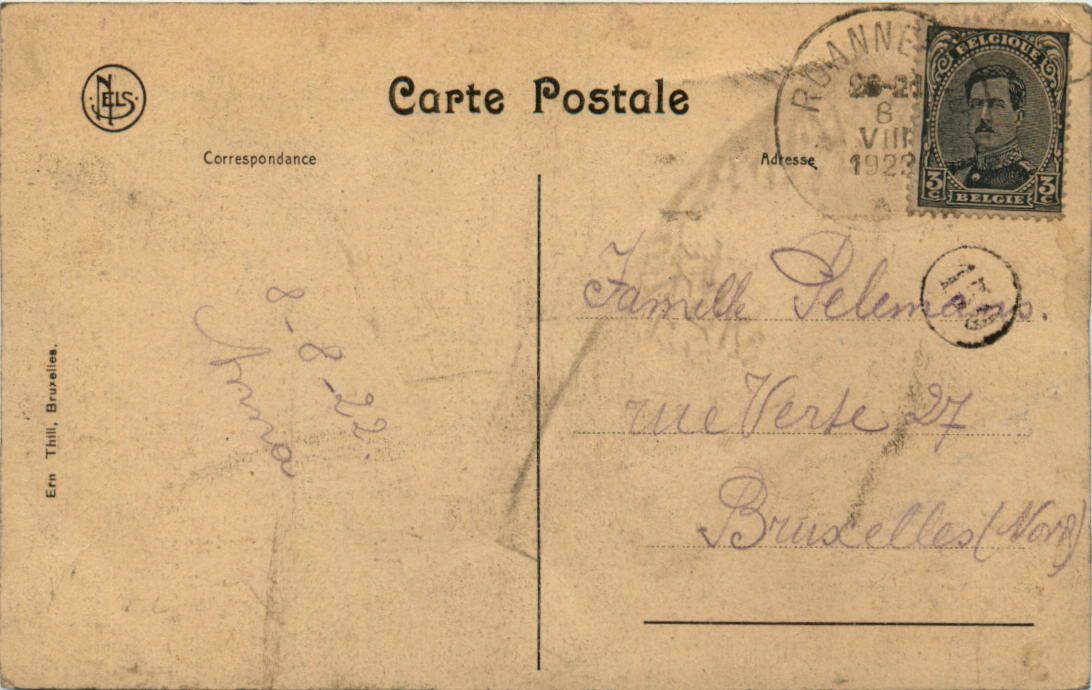 NELS
Carte Postale
Correspondance
Adresse
ROANNE
20-21
8
VIII
1922
BELGIQUE
3c 3c
BELGIE
Famille Pelemans.
rue Verte 27
Bruxelles (Nord)
8-8-22.
Anna
Ern Thill, Bruxelles.